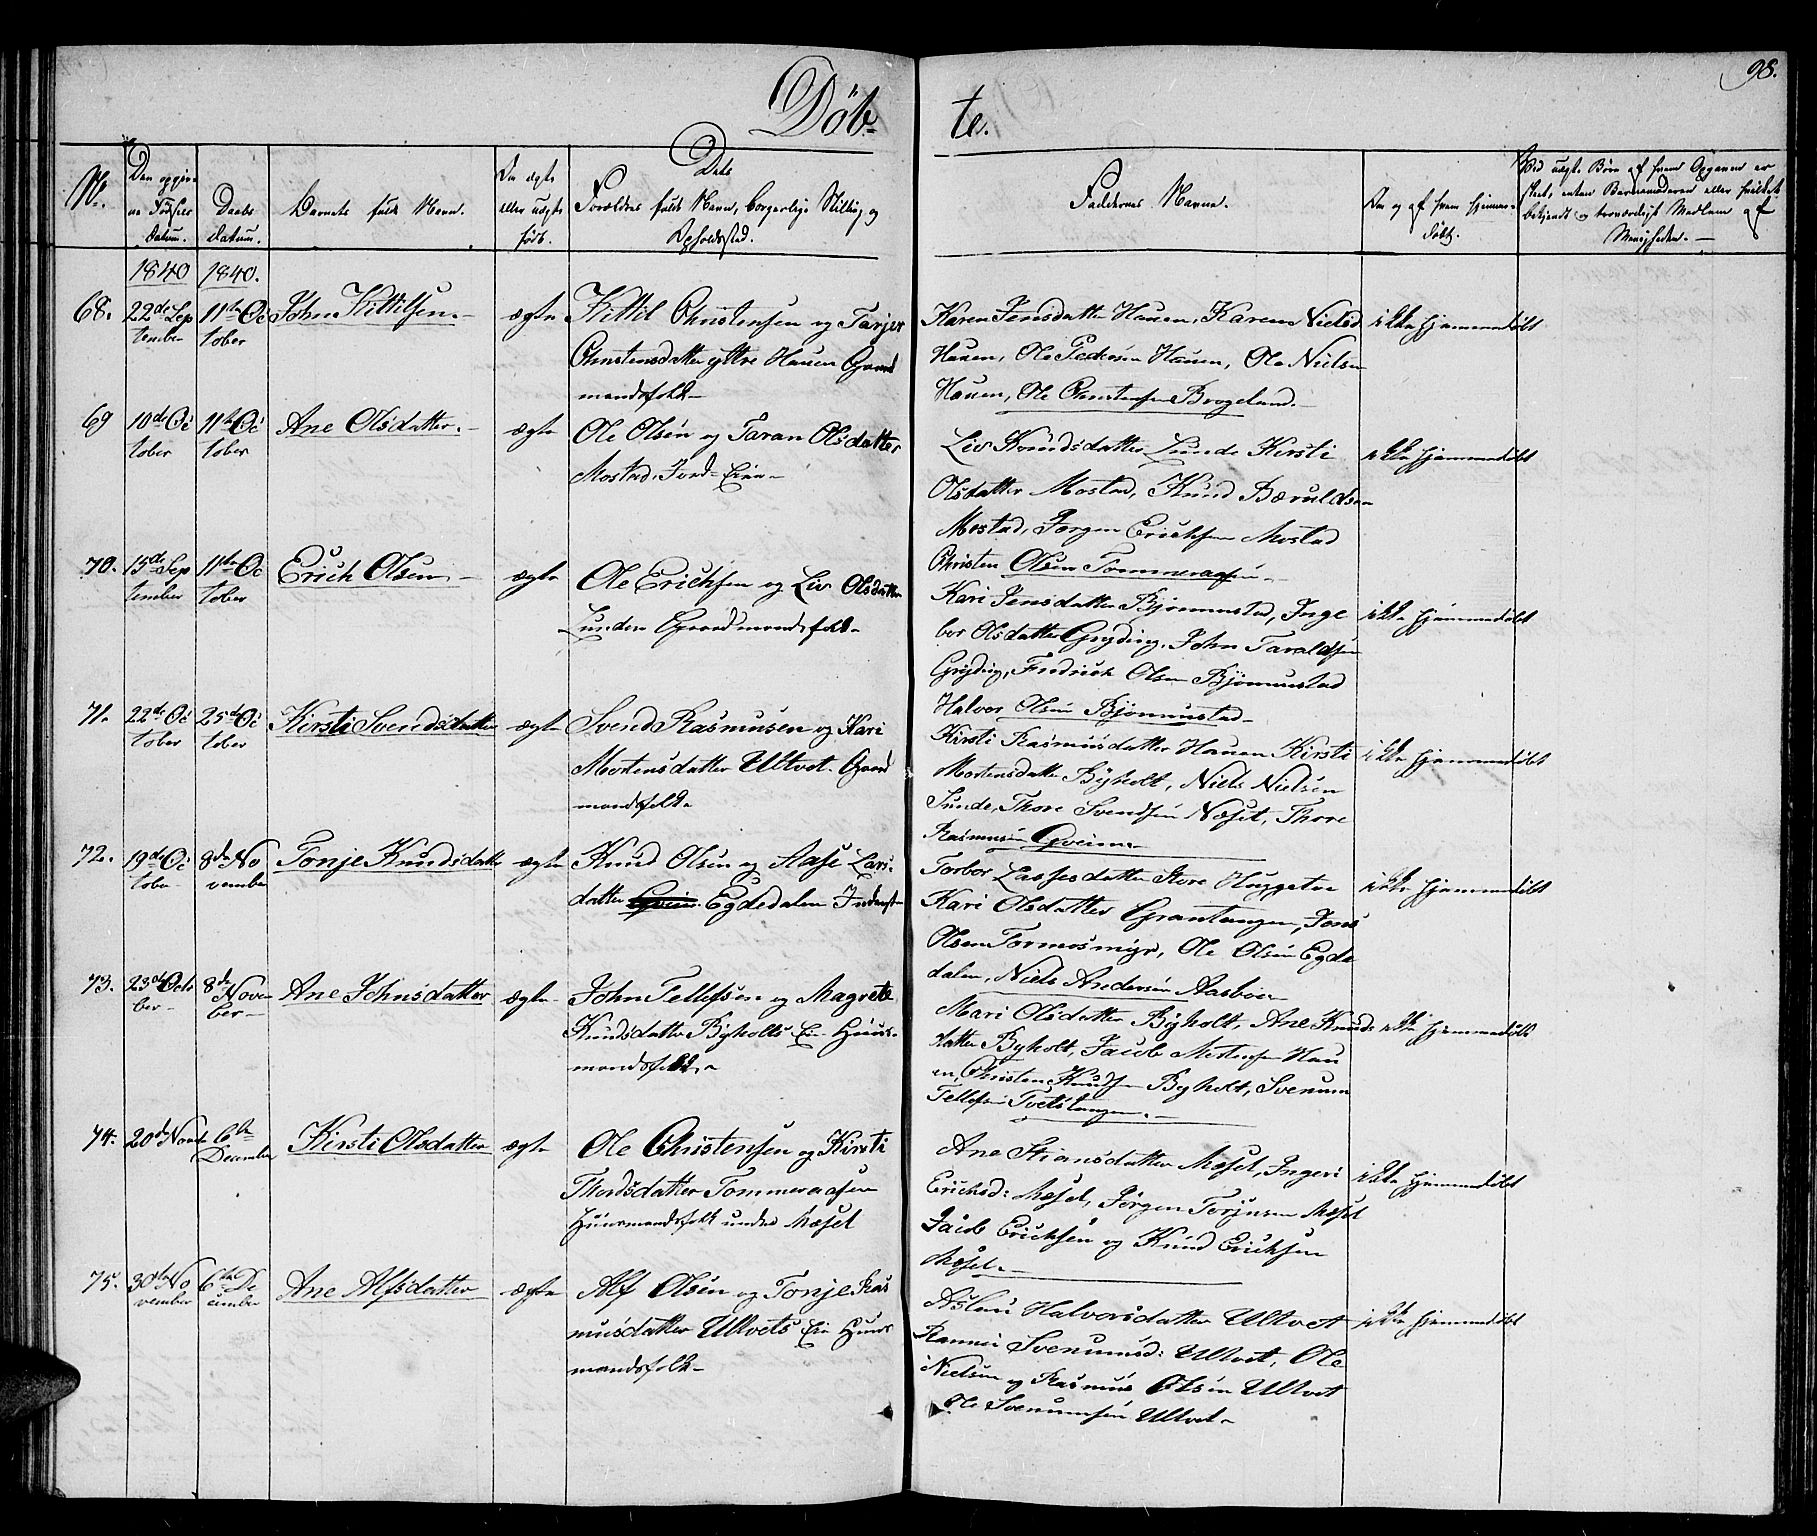 98.
Döb- te.
No.
Den opgivne Fødsels Datum.
Daabs Datum.
Barnets fulde Navn.
Om ægte eller uægte født.
Dets Forældres fulde Navn, borgerlige Stilling og Opholdssted.
Faddernes Navne.
Om og af hvem hjemmedöbt.
Ved uægte Börn af hvem Opgaven er skeet, enten Barnemoderen eller hvilket bekjendt og troværdigt Medlem af Menigheden.
1840 1840.
68. 22de September 11te October John Kittilsen. ægte
Kittil Christensen og Tarjer
Christensdatter yttre Hauen Gaard
mandsfolk
Karen Jensdatter Hauen, Karen Nielsd
Hauen, Ole Pedersen Hauen, Ole Nielsen
Hauen, Ole Christensen Brogeland.
ikke hjemmedöbt
69 10de October 11te October Ane Olsdatter. ægte
Ole Olsen og Taran Olsdatter
Mostad Jord-Eier
Liv Knudsdatter Lunde Kirsti
Olsdatter Mostad, Knud Bæruldsen
Mostad, Jørgen Erichsen Mostad
Christen Olsen Tommeraasen
ikke hjemmedöbt
70. 15de September 11te October Erich Olsen ægte
Ole Erichsen og Liv Olsdatter
Lunden Gaardmandsfolk
Kari Jensdatter Bjönnustad, Inge
bor Olsdatter Gryding, John Taraldsen
Gryding, Fredrich Olsen Bjönnustad
Halvor Olsen Bjönnustad
ikke hjemmedöbt
71. 22de October 25de October Kirsti Svendsdatter ægte
Svend Rasmusen og Kari
Mortensdatter Ultvet Gaard
mandsfolk
Kirsti Rasmusdatter Hauen Kirsti
Mortensdatter Byholt, Niels Nielsen
Sunde, Thore Svendsen Næset, Thore
Rasmusen Gveim
ikke hjemmedöbt
72. 19de October 8de November Tonje Knudsdatter ægte
Knud Olsen og Aase Lars
datter Egdedalen Inderst
Torbor Lassesdatter Store Huggetve
Kari Olsdatter Grantangen, Jens
Olsen Tormosmyr, Ole Olsen Egde
dalen, Niels Andersen Aasböe
ikke hjemmedöbt
73. 23de October 8de November Ane Johnsdatter ægte
John Tellefsen og Magrete
Knudsdatter Byholts Eie Huus
mandsfolk
Mari Olsdatter Byholt, Ane Knuds
datter Byholt, Jacob Mortensen Hau
en, Christen Knudsen Byholt, Svenum
Tellefsen Tvetstangen.
ikke hjemmedöbt
74. 20de Novb 6te December Kirsti Olsdatter ægte
Ole Christensen og Kirsti
Thordsdatter Tommeraasen
Huusmandsfolk under Mæsel
Ane Stiansdatter Mæsel, Ingeri
Erichsd: Mæsel, Jörgen Torjusen Mæsel
Jacob Erichsen og Knud Erichsen
Mæsel
ikke hjemmedöbt
75. 30te November 6te December Ane Alfsdatter ægte
Alf Olsen og Tonje Ras
musdatter Ultvets Eie Huus
mandsfolk
Aslau Halvorsdatter Ultvet
Rannei Svenumsd: Ultvet, Ole
Nielsen og Rasmus Olsen Ultvet
Ole Svenumsen Ultvet
ikke hjemmedöbt